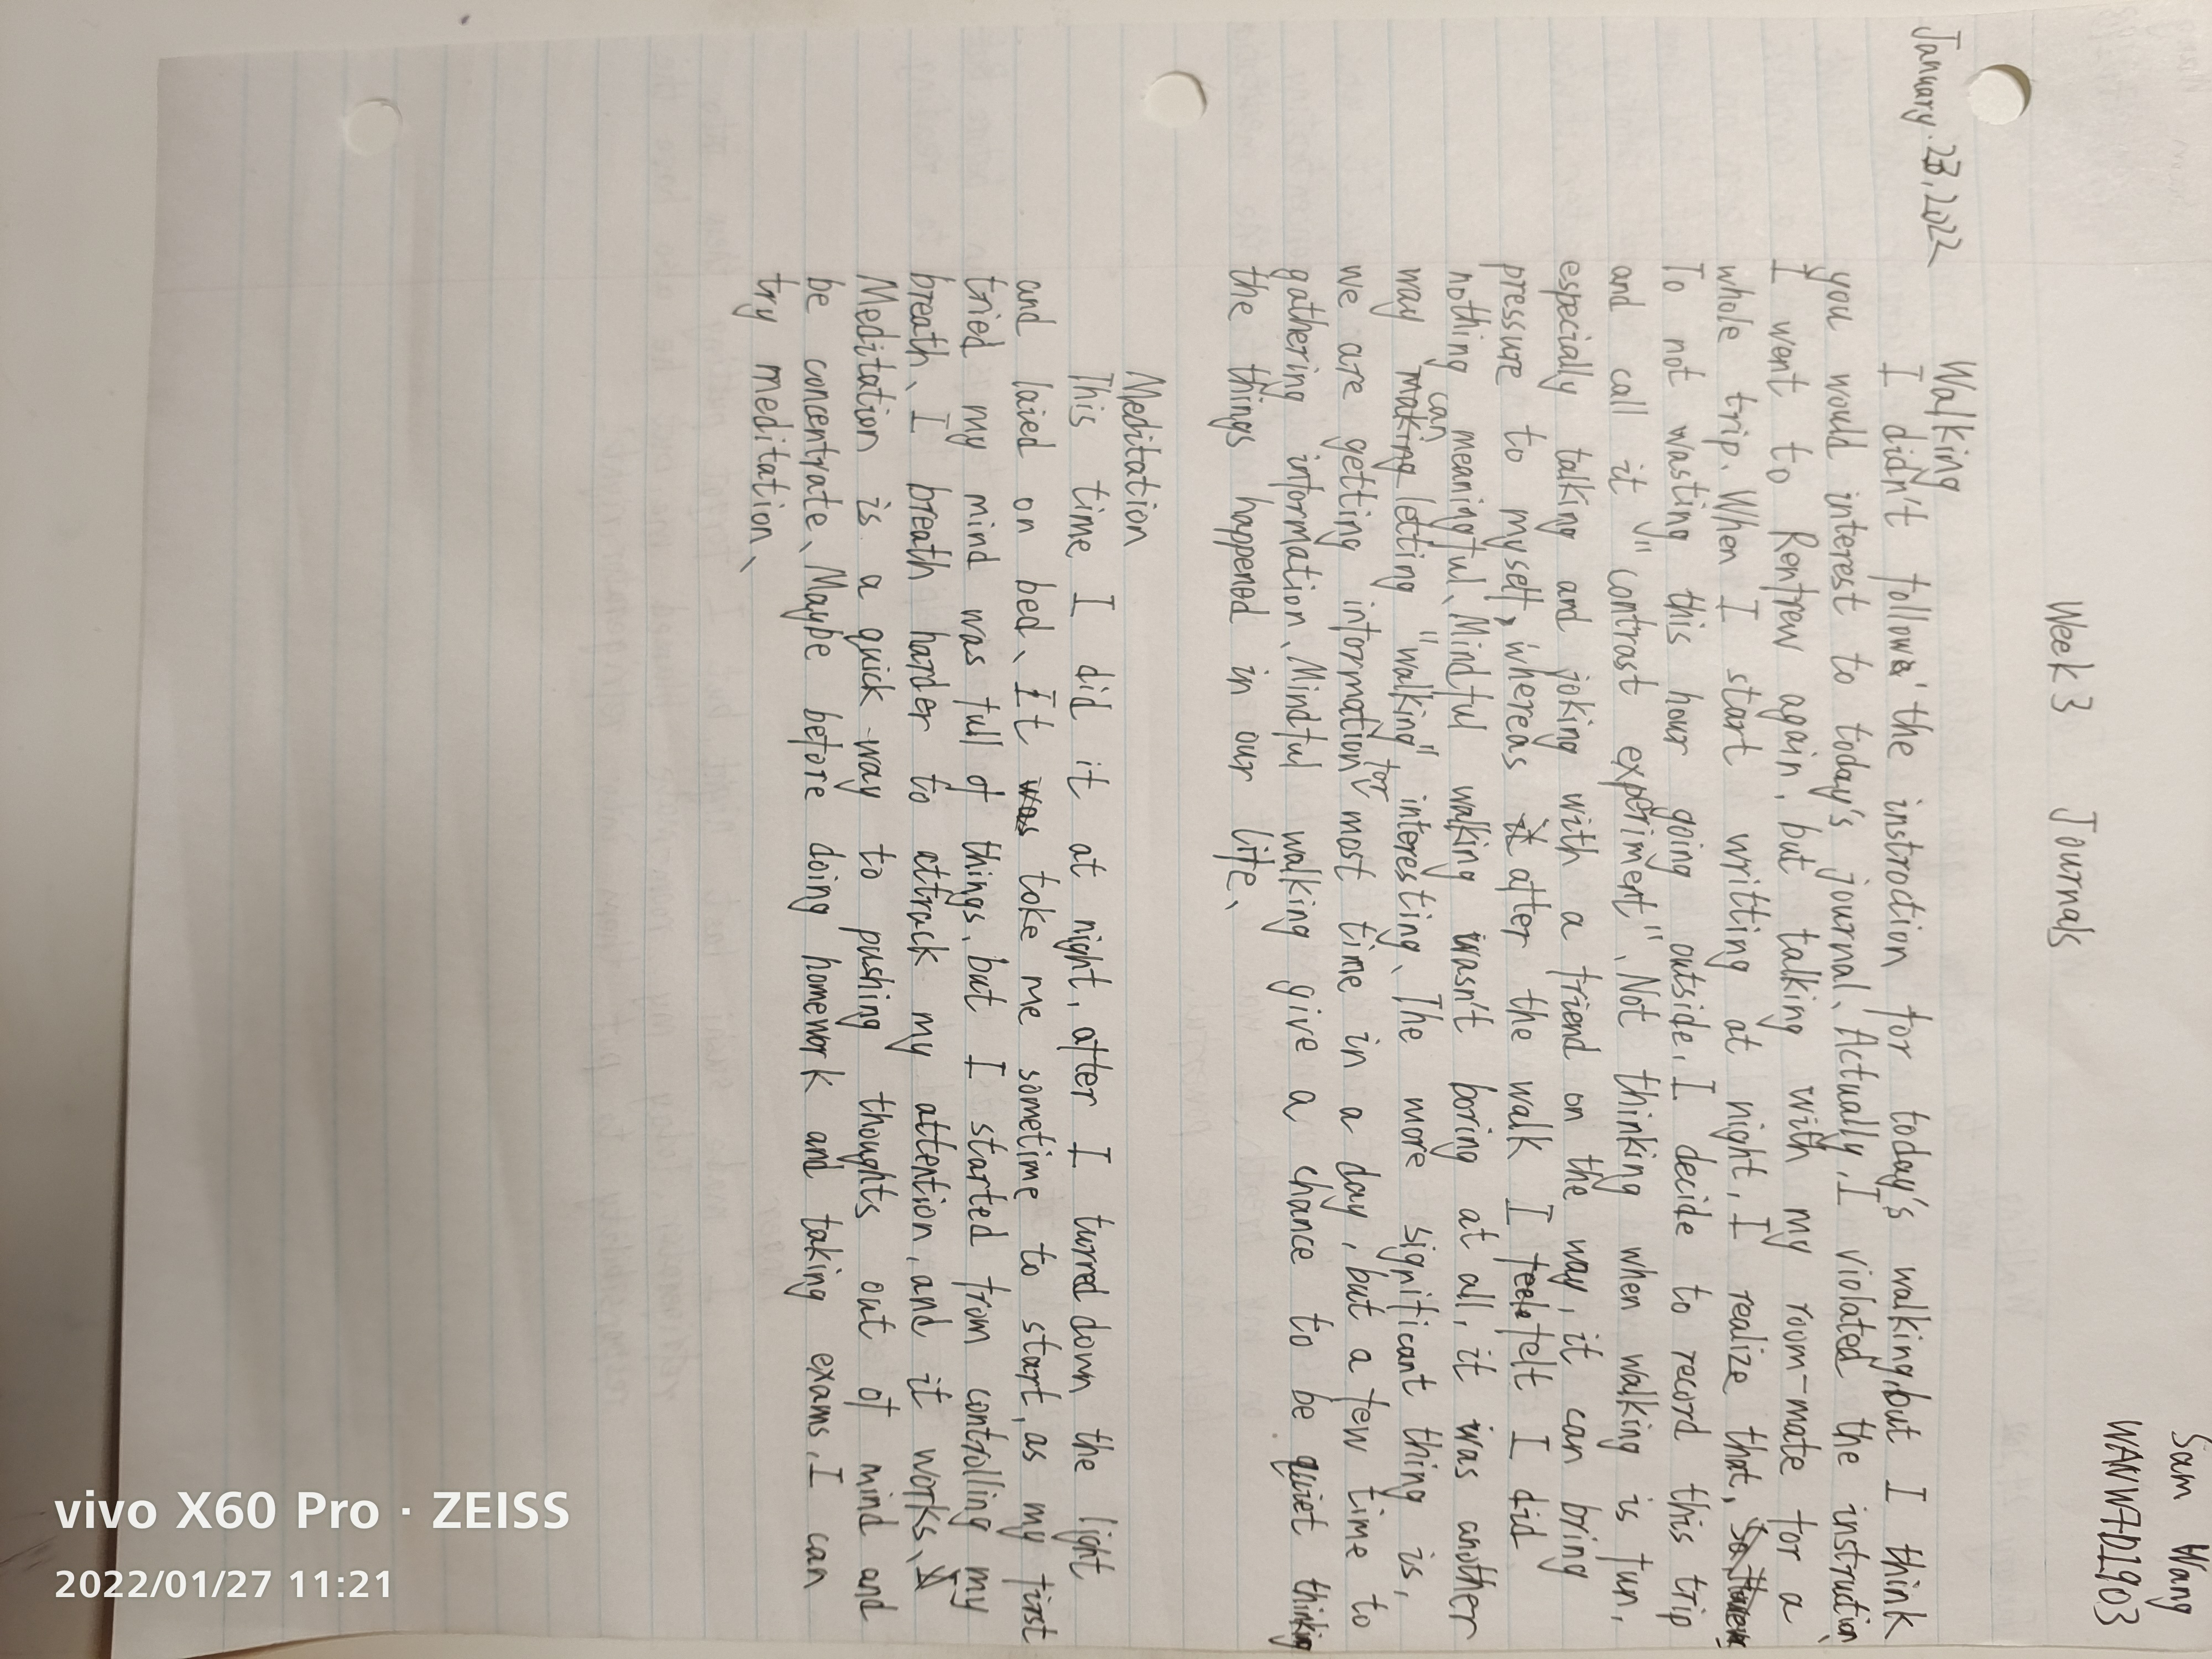 Sam Wang
WANW7D1903
Week 3 Journals
January. 23, 2022
Walking
I didn't follow the instroction for today's walking, but I think
you would interest to today's journal、Actually, I violated the instruction、
I went to Renfrew again, but talking with my room-mate for a
whole trip. When I start writting at night, I realize that,
To not wasting this hour going outside, I decide to record this trip
and call it "contrast experiment"、Not thinking when walking is fun,
especially talking and joking with a friend on the way, it can bring
pressure to myself, whereas after the walk I felt I did
nothing meaningful、Mindful walking wasn't boring at all, it was another
way can letting "walking" interesting、The more significant thing is,
we are getting information for most time in a day, but a few time to
gathering information、Mindful walking give a chance to be quiet thinking
the things happened in our life、
Meditation
This time I did it at night, after I turned down the light
and laied on bed、It take me sometime to start, as my first
tried my mind was full of things, but I started from controlling my
breath、I breath harder to attrack my attention, and it works、
Meditation is a quick way to pushing thoughts out of mind and
be concentrate、Maybe before doing homework and taking exams, I can
try meditation、
vivo X60 Pro · ZEISS
2022/01/27 11:21